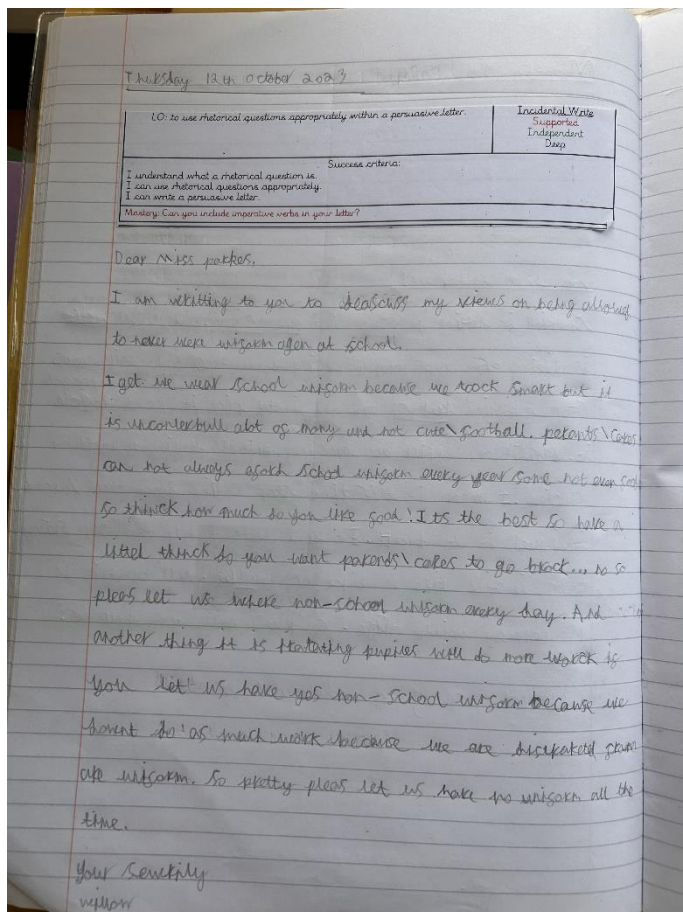 Thursday 12th October 2023
LO: to use rhetorical questions appropriately within a persuasive letter.
Incidental Write
Supported
Independent
Deep
Success criteria:
I understand what a rhetorical question is.
I can use rhetorical questions appropriately.
I can write a persuasive letter.
Mastery: Can you include imperative verbs in your letter?
Dear Miss parkes,
I am writting to you to deascuss my views on being allowed
to never were unigorm agen at school.
I get we wear school unigorm because we loock smart but it
is unconterbull alot of mony and not cute\football. perants\cares
can not always agord school unigorm every year some not even
so thinck how much do you like good! Its the best so have a
littel thinck do you want parends\cares to go brock... no so
pleas let us where non-school unigorm every day. And
another thing it is iretating pupiles will do more worck if
you let us have yes non-school unigorm because we
havent do as much work because we are
are unigorm. So pretty pleas let us have no unigorm all the
time.
your
willow